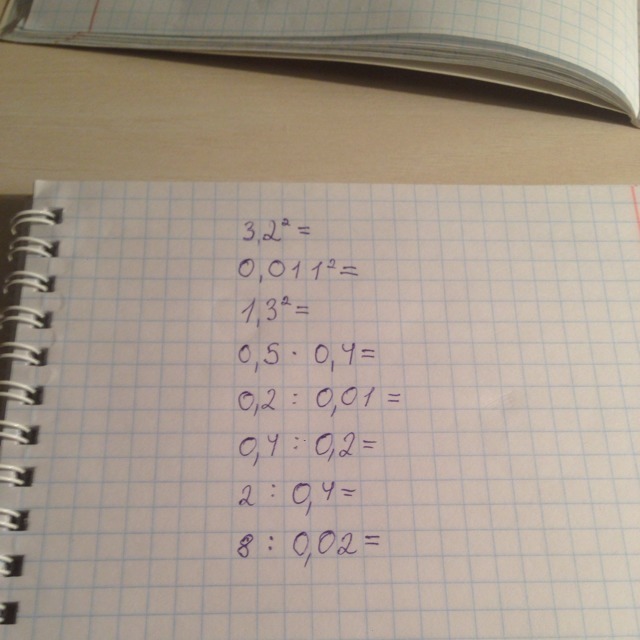 3,2²=
0,011²=
1,3²=
0,5 · 0,4=
0,2 : 0,01 =
0,4 : 0,2=
2 : 0,4=
8 : 0,02=